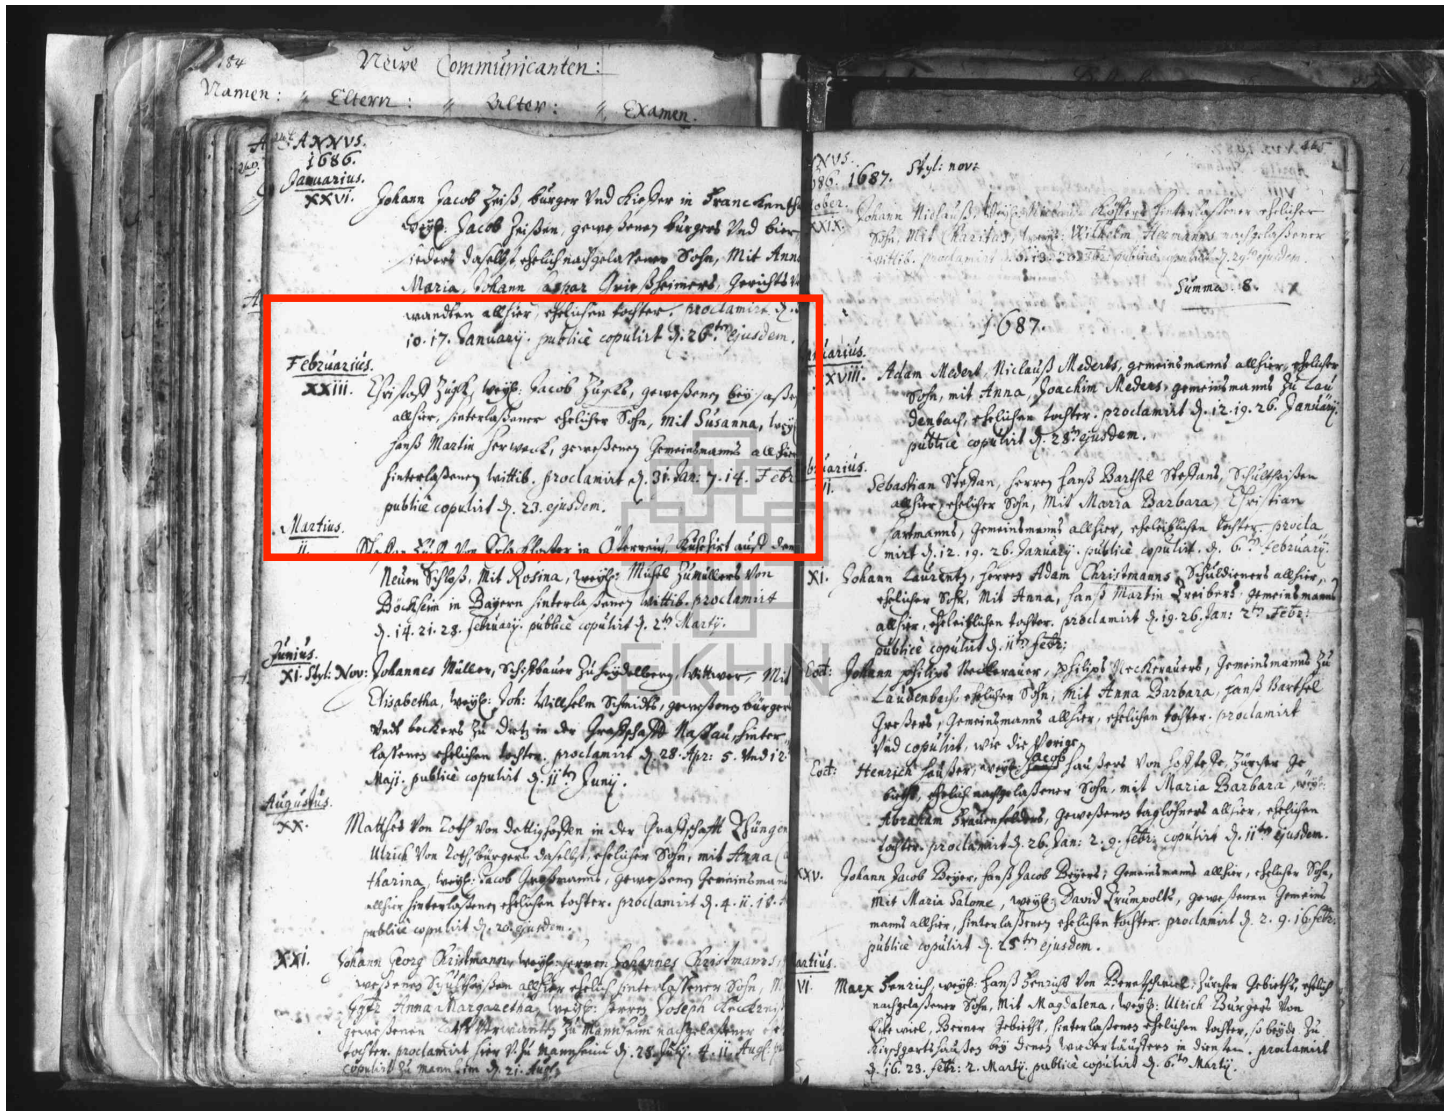 184
Neüe Communicanten:
Namen: Eltern: Alter: Examen.
ANNVS.
1686.
Januarius.
XXVI. Johann Jacob Zeiß, bürger Vnd Kießer in Franckenth
weyl: Jacob Zeißen, geweßenen bürgers Vnd bier
sieders daselbst, ehelich nachgelaßener Sohn, Mit Anna
Maria, Johann Caspar Grießheimers, Gerichts V
wandten allhier, ehelichen tochter. proclamirt d.
10. 17. January. publicè copulirt d. 26ten ejusdem.
Februarius.
XXIII. Christoff weyl: Jacob geweßenen beysaßen
allhier, hinterlaßener ehelicher Sohn, mit Susanna, weyl
Hanß Martin geweßenen Gemeinsmanns allhier
hinterlaßenen wittib. proclamirt d. 31. Jan: 7. 14. Febr
publicè copulirt d. 23. ejusdem.
Martius.
II. Steffan von in Österreich, auß dem
Neuen Schloß, Mit Rosina, weyl: Von
Böckheim in Bayern hinterlaßenen wittib. proclamirt
d. 14. 21. 28. February. publicè copulirt d. 2ten Marty.
Junius.
XI. Styl: Nov: Johannes Müller, Schiffbauer Zu Heydelberg, Wittwer, Mit
Elisabetha, weyl: Joh: Willhelm Schmidts, geweßenen bürgers
Vndt beckers Zu Dietz in der Graffschafft Naßau, hinter
laßenen ehelichen tochter. proclamirt d. 28. Apr: 5. Vnd 12.
Maji. publicè copulirt d. 11ten Junij.
Augustus.
XX. Matthes Von Von in der Graffschafft
Ulrich Von bürgers daselbst, ehelicher Sohn, mit Anna Ca
tharina, weyl: Jacob geweßenen Gemeinsmanns
allhier hinterlaßenen ehelichen tochter. proclamirt d. 4. 11. 18.
publicè copulirt d. 20. ejusdem.
XXI. Johann Georg Christmann, weyl: Herrn Johannes Christmanns,
weßenen Schultheyßen allhier ehelich hinterlaßener Sohn, M
Anna Margaretha, weyl: Herrn Joseph
geweßenen Verwandten Zu Mannheim nachgelaßener
tochter. proclamirt hier V. Zu Mannheim d. 28. July. 4. 11. Aug:
copulirt Zu Mannheim d. 21. Aug:
445
NNVS.
686. 1687. Styl: nov:
tober.
XXIX. Johann Niclauß, weyl: hinterlaßener ehelicher
Sohn, Mit Charitas, weyl: Wilhelm Hermanns nachgelaßener
wittib. proclamirt publicè copulirt d. 29ten ejusdem.
Summa. 8.
1687.
nuarius.
XVIII. Adam Medert, Niclauß Mederts, gemeinsmanns allhier, ehelicher
Sohn, mit Anna, Joachim Meders, gemeinsmanns Zu Lau
denbach, ehelichen tochter. proclamirt d. 12. 19. 26. January.
publicè copulirt d. 28ten ejusdem.
bruarius.
VI. Sebastian Steffan, Herren Hanß Barthel Steffans, Schultheißen
allhier, ehelicher Sohn, Mit Maria Barbara, Christian
Hartmanns, Gemeinsmanns allhier, eheleiblichen tochter. procla
mirt d. 12. 19. 26. January. publicè copulirt. d. 6ten February.
XI. Johann Laurentz, Herren Adam Christmanns, Schuldieners allhier,
ehelicher Sohn, Mit Anna, Hanß Martin Treibers, gemeinsmanns
allhier, eheleiblichen tochter. proclamirt d. 19. 26. Jan: 2ten Febr:
publicè copulirt d. 11ten Febr:
Eod: Johann Philips Neckerauer, Philips Neckerauers, Gemeinsmanns Zu
Laudenbach, ehelicher Sohn, mit Anna Barbara, Hanß Barthel
Großers, Gemeinsmanns allhier, ehelichen tochter. proclamirt
Vnd copulirt, wie die Vorige.
Eod: Henrich Haußer, weyl: Jacob Haußers Von Zürcher Ge
bieths, ehelich nachgelaßener Sohn, mit Maria Barbara, weyl:
Abraham Frauenfelders, geweßenen taglöhners allhier, ehelichen
tochter. proclamirt d. 26. Jan: 2. 9. Febr: copulirt d. 11ten ejusdem.
XXV. Johann Jacob Beyer, Hanß Jacob Beyers, Gemeinsmanns allhier, ehelicher Sohn,
Mit Maria Salome, weyl: David Krumpolts, geweßenen Gemeins
manns allhier, hinterlaßenen ehelichen tochter. proclamirt d. 2. 9. 16. Febr:
publicè copulirt d. 25ten ejusdem.
artius.
VI. Marx Henrich, weyl: Hanß Henrichs Von Zürcher Gebieths, ehelich
nachgelaßener Sohn, Mit Magdalena, weyl: Ulrich Burgers Von
Berner Gebieths, hinterlaßenen ehelichen tochter, so beyde Zu
Kirschgartshaußen bey denen wiedertäuffern in diensten. proclamirt
d. 16. 23. Febr: 2. Marty. publicè copulirt d. 6ten Marty.
EKHN